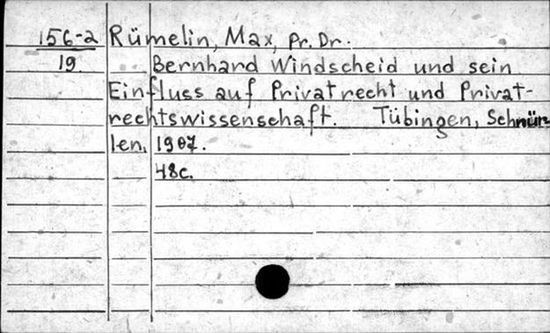 156-2 Rümelin, Max, Pr. Dr.
19 Bernhard Windscheid und sein
Einfluss auf Privatrecht und Privat-
rechtswissenschaft. Tübingen, Schnür-
len, 1907.
48c.